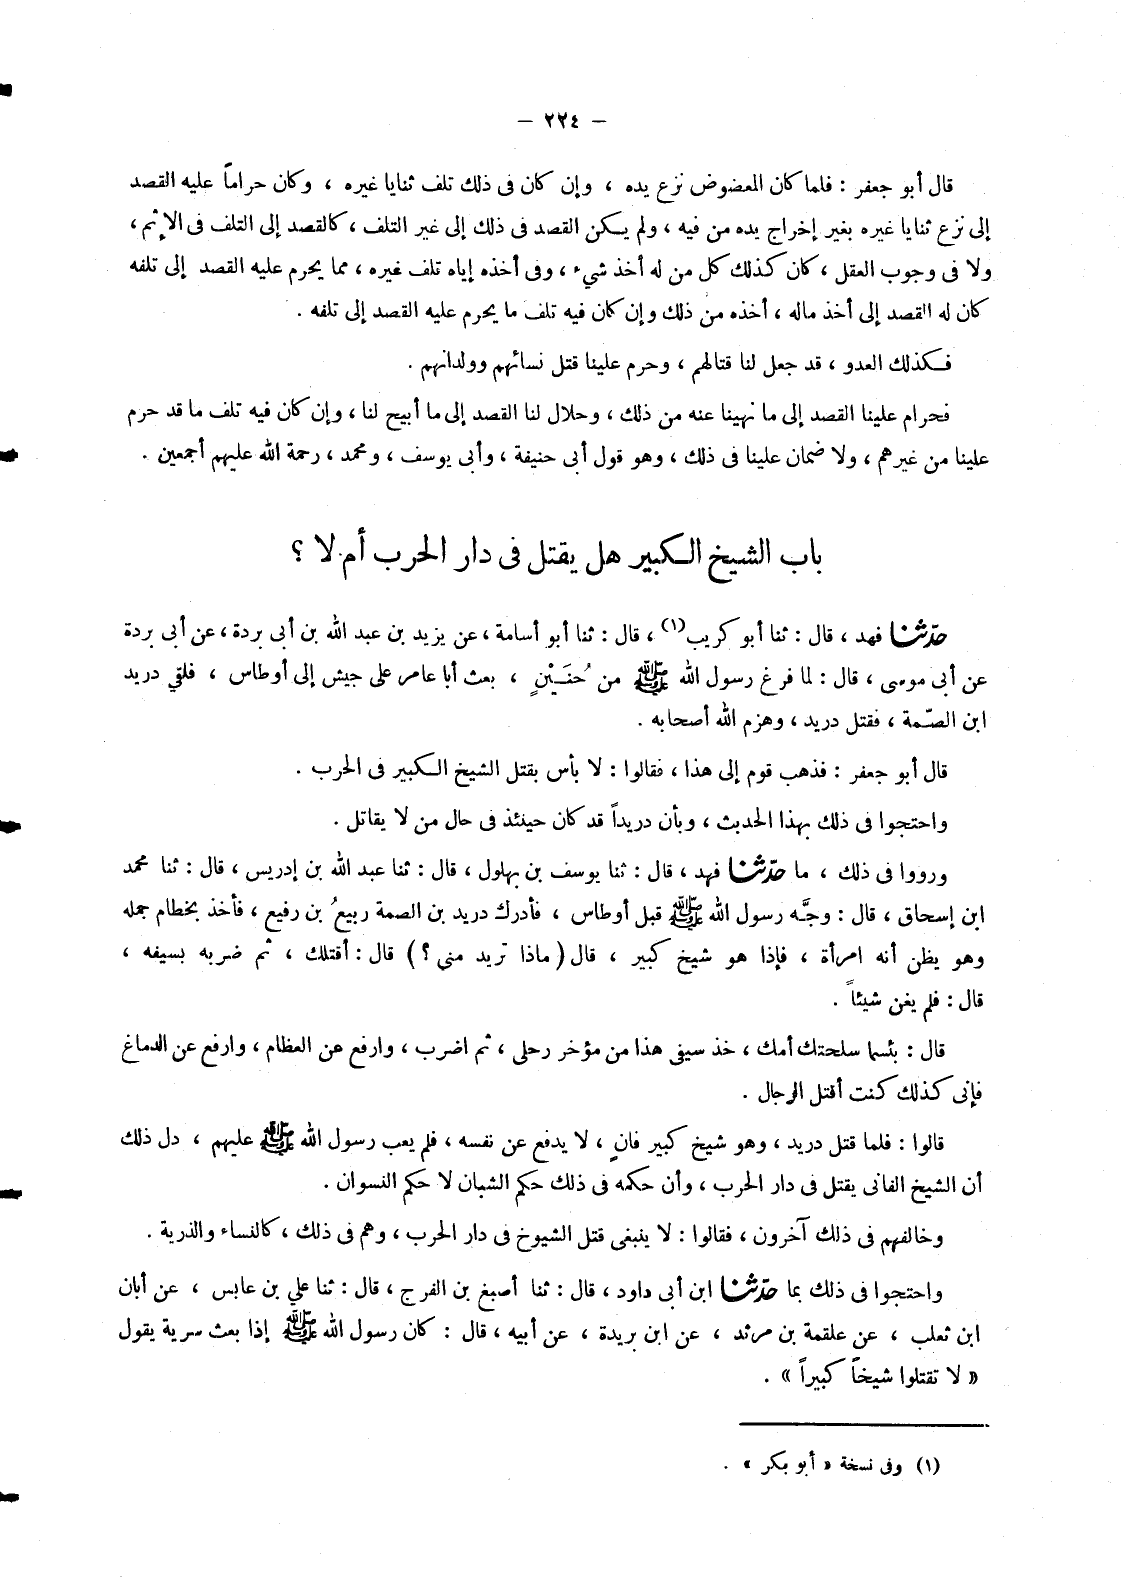 – ٢٢٤ –
قال أبو جعفر : فلما كان المعضوض نزع يده ، وإن كان فى ذلك تلف ثنايا غيره ، وكان حراماً عليه القصد
إلى نزع ثنايا غيره بغير إخراج يده من فيه ، ولم يكن القصد فى ذلك إلى غير التلف ، كالقصد إلى التلف فى الإثم ،
ولا فى وجوب العقل ، كان كذلك كل من له أخذ شيء ، وفى أخذه إياه تلف غيره ، مما يحرم عليه القصد إلى تلفه
كان له القصد إلى أخذ ماله ، أخذه من ذلك وإن كان فيه تلف ما يحرم عليه القصد إلى تلفه .
فكذلك العدو ، قد جعل لنا قتالهم ، وحرم علينا قتل نسائهم وولدانهم .
فحرام علينا القصد إلى ما نهينا عنه من ذلك ، وحلال لنا القصد إلى ما أبيح لنا ، وإن كان فيه تلف ما قد حرم
علينا من غيرهم ، ولا ضمان علينا فى ذلك ، وهو قول أبى حنيفة ، وأبى يوسف ، ومحمد ، رحمة الله عليهم أجمعين .
باب الشيخ الكبير هل يقتل فى دار الحرب أم لا ؟
حدّثنا فهد ، قال : ثنا أبو كريب(١) ، قال : ثنا أبو أسامة ، عن يزيد بن عبد الله بن أبى بردة ، عن أبى بردة
عن أبى موسى ، قال : لما فرغ رسول الله ﷺ من حُنَيْنٍ ، بعث أبا عامر على جيش إلى أوطاس ، فلقي دريد
ابن الصّمة ، فقتل دريد ، وهزم الله أصحابه .
قال أبو جعفر : فذهب قوم إلى هذا ، فقالوا : لا بأس بقتل الشيخ الكبير فى الحرب .
واحتجوا فى ذلك بهذا الحديث ، وبأن دريداً قد كان حينئذ فى حال من لا يقاتل .
ورووا فى ذلك ، ما حدّثنا فهد ، قال : ثنا يوسف بن بهلول ، قال : ثنا عبد الله بن إدريس ، قال : ثنا محمد
ابن إسحاق ، قال : وجَّه رسول الله ﷺ قبل أوطاس ، فأدرك دريد بن الصمة ربيعُ بن رفيع ، فأخذ بخطام جمله
وهو يظن أنه امرأة ، فإذا هو شيخ كبير ، قال ( ماذا تريد مني ؟ ) قال : أقتلك ، ثم ضربه بسيفه ،
قال : فلم يغن شيئاً .
قال : بئسما سلحتك أمك ، خذ سيفى هذا من مؤخر رحلى ، ثم اضرب ، وارفع عن العظام ، وارفع عن الدماغ
فإنى كذلك كنت أقتل الرجال .
قالوا : فلما قتل دريد ، وهو شيخ كبير فانٍ ، لا يدفع عن نفسه ، فلم يعب رسول الله ﷺ عليهم ، دل ذلك
أن الشيخ الفانى يقتل فى دار الحرب ، وأن حكمه فى ذلك حكم الشبان لا حكم النسوان .
وخالفهم فى ذلك آخرون ، فقالوا : لا ينبغى قتل الشيوخ فى دار الحرب ، وهم فى ذلك ، كالنساء والذرية .
واحتجوا فى ذلك بما حدّثنا ابن أبى داود ، قال : ثنا أصبغ بن الفرج ، قال : ثنا علي بن عابس ، عن أبان
ابن ثعلب ، عن علقمة بن مرثد ، عن ابن بريدة ، عن أبيه ، قال : كان رسول الله ﷺ إذا بعث سرية يقول
« لا تقتلوا شيخاً كبيراً » .
(١) وفى نسخة « أبو بكر » .